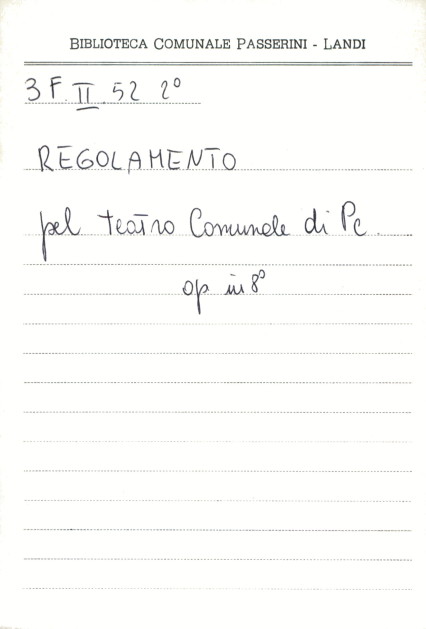 BIBLIOTECA COMUNALE PASSERINI - LANDI
3 F. II. 52 2°
REGOLAMENTO
pel teatro Comunale di Pc.
op in 8°